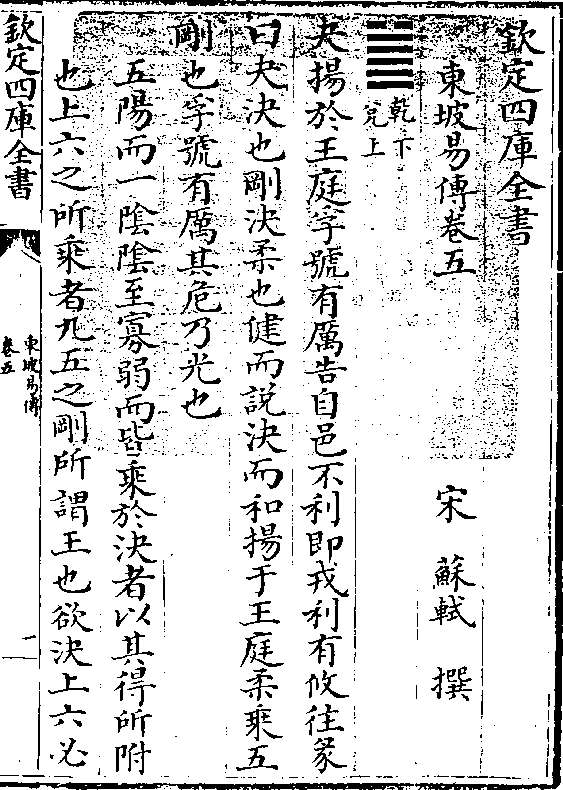 欽定四庫全書
東坡易傳卷五
宋 蘇軾 撰
乾下
兌上
夬揚於王庭孚號有厲告自邑不利即戎利有攸往彖
曰夬決也剛決柔也健而說決而和揚于王庭柔乘五
剛也孚號有厲其危乃光也
五陽而一陰陰至寡弱而皆乘於決者以其得所附
也上六之所乘者九五之剛所謂王也欲決上六必
欽定四庫全書
東坡易傳
卷五
一